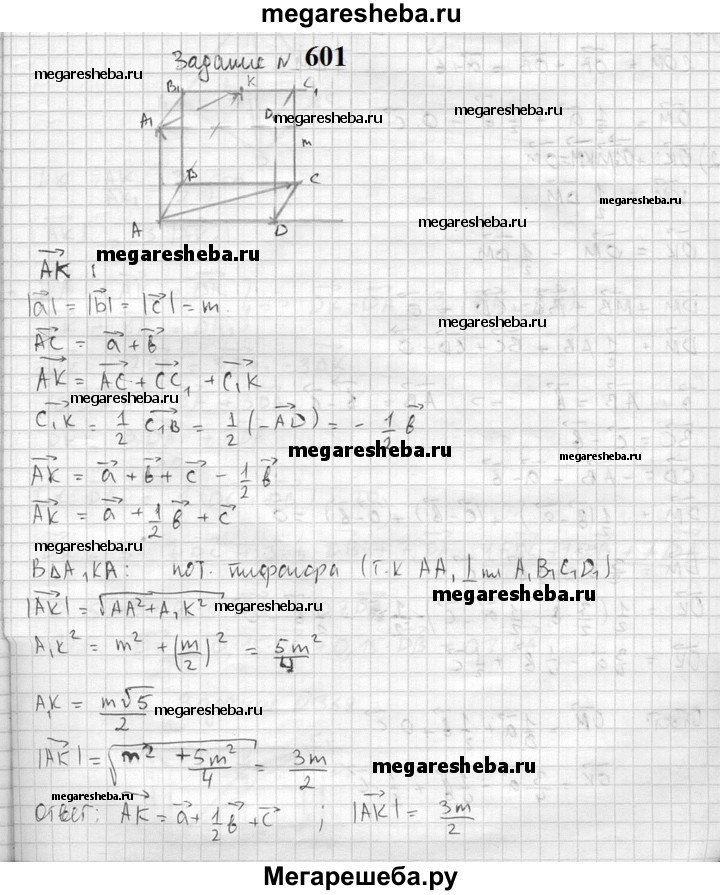 megaresheba.ru
Задание № 601
megaresheba.ru
B₁ K C₁
megaresheba.ru
A₁ D₁
megaresheba.ru
m
B C
megaresheba.ru
A D
megaresheba.ru
AK⃗ :
|a⃗| = |b⃗| = |c⃗| = m.
megaresheba.ru
AC⃗ = a⃗ + b⃗
AK⃗ = AC⃗ + CC₁⃗ + C₁K⃗
megaresheba.ru
C₁K⃗ = 1/2 C₁B⃗ = 1/2 (-AD⃗) = - 1/2 b⃗
megaresheba.ru
megaresheba.ru
AK⃗ = a⃗ + b⃗ + c⃗ - 1/2 b⃗
AK⃗ = a⃗ + 1/2 b⃗ + c⃗
megaresheba.ru
В ΔA₁KA: по т. Пифагора (т.к AA₁ ⊥ пл A₁B₁C₁D₁)
megaresheba.ru
|AK⃗| = √(AA² + A₁K²)
megaresheba.ru
A₁K² = m² + (m/2)² = 5m²/4
A₁K = m√5/2
megaresheba.ru
|AK⃗| = √(m² + 5m²/4) = 3m/2
megaresheba.ru
megaresheba.ru
Ответ: AK⃗ = a⃗ + 1/2 b⃗ + c⃗ ; |AK⃗| = 3m/2
Мегарешеба.ру